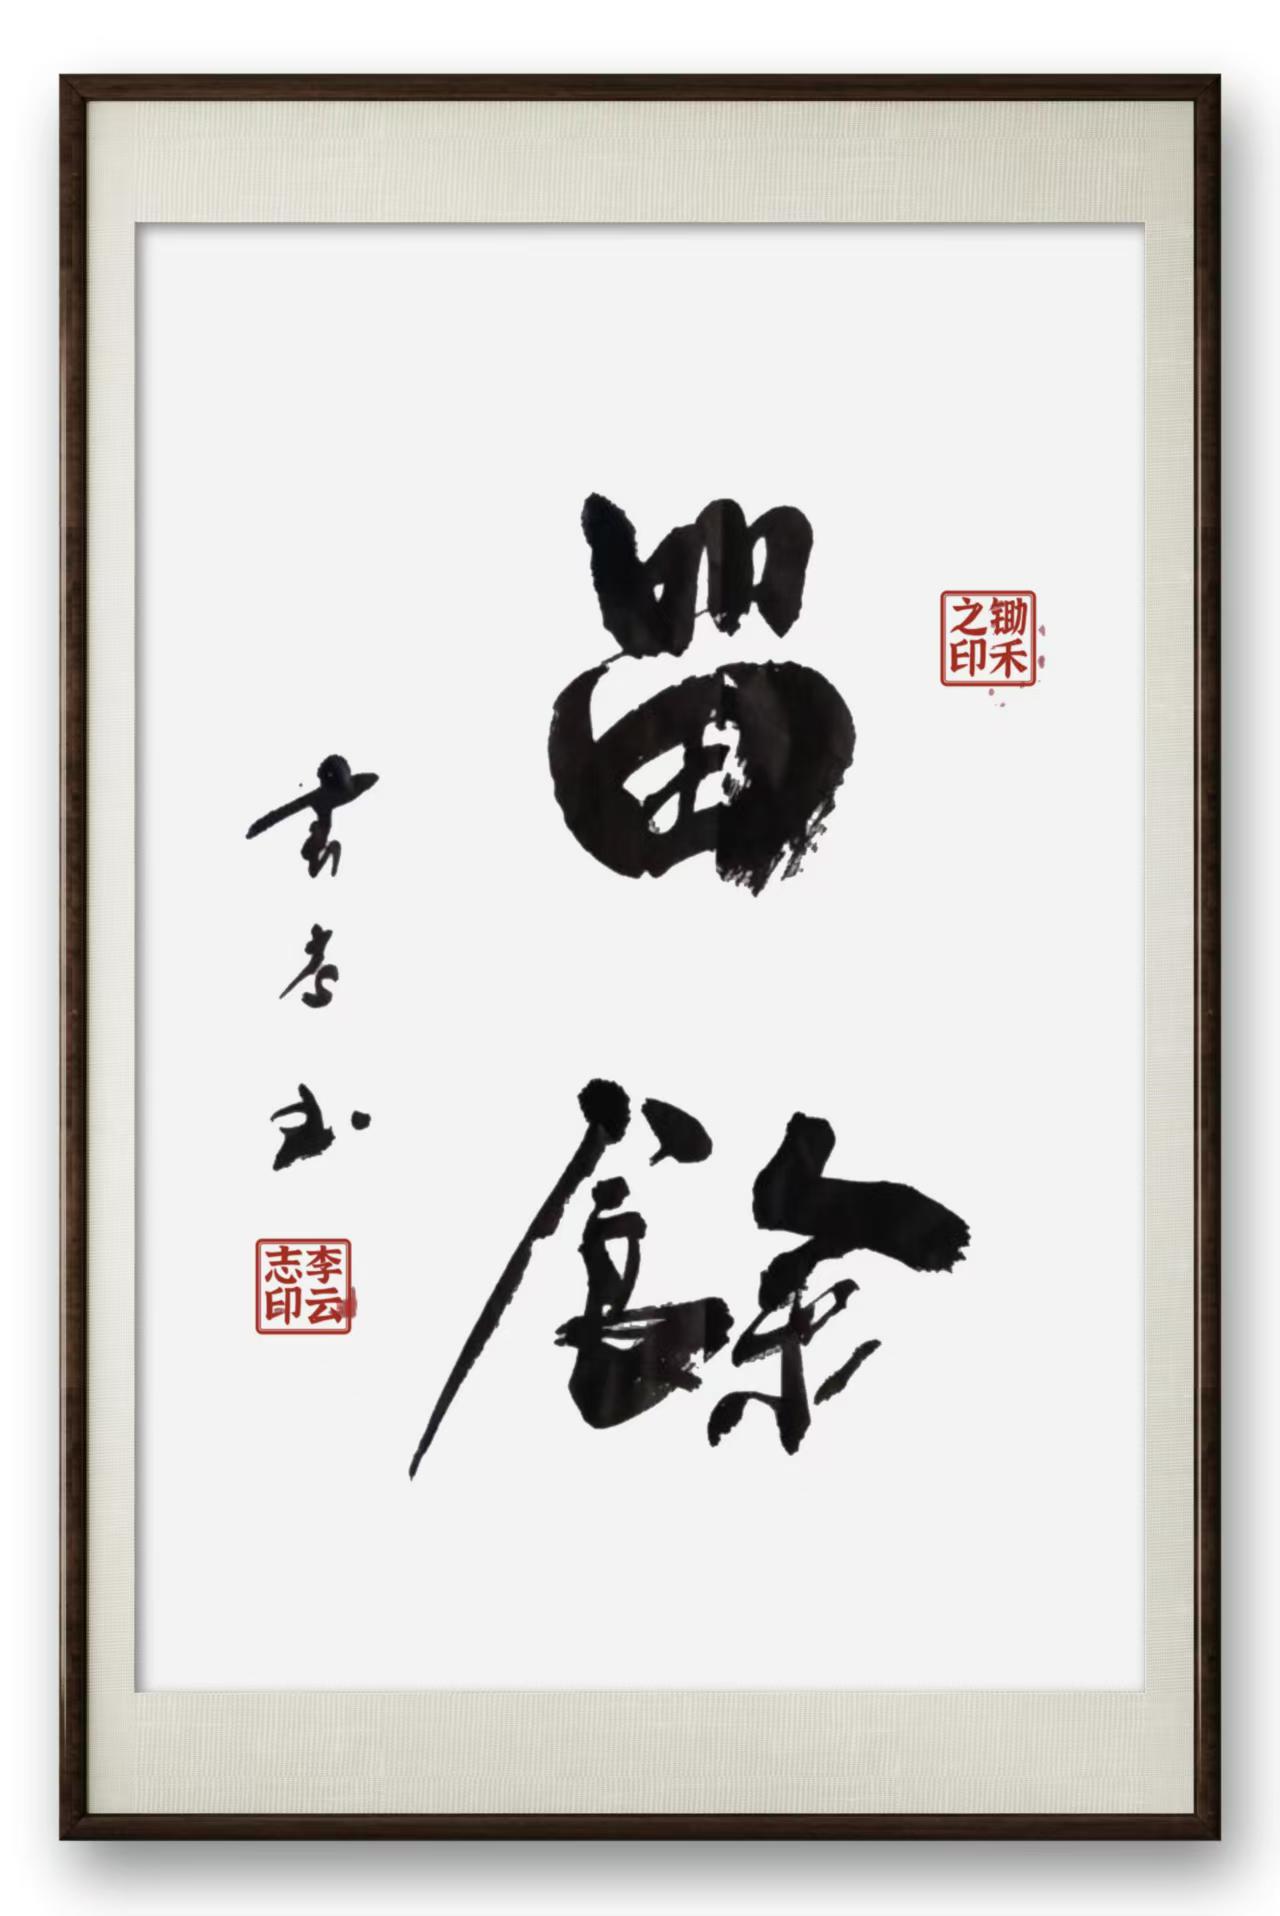 留餘
锄禾之印
书
李云志印